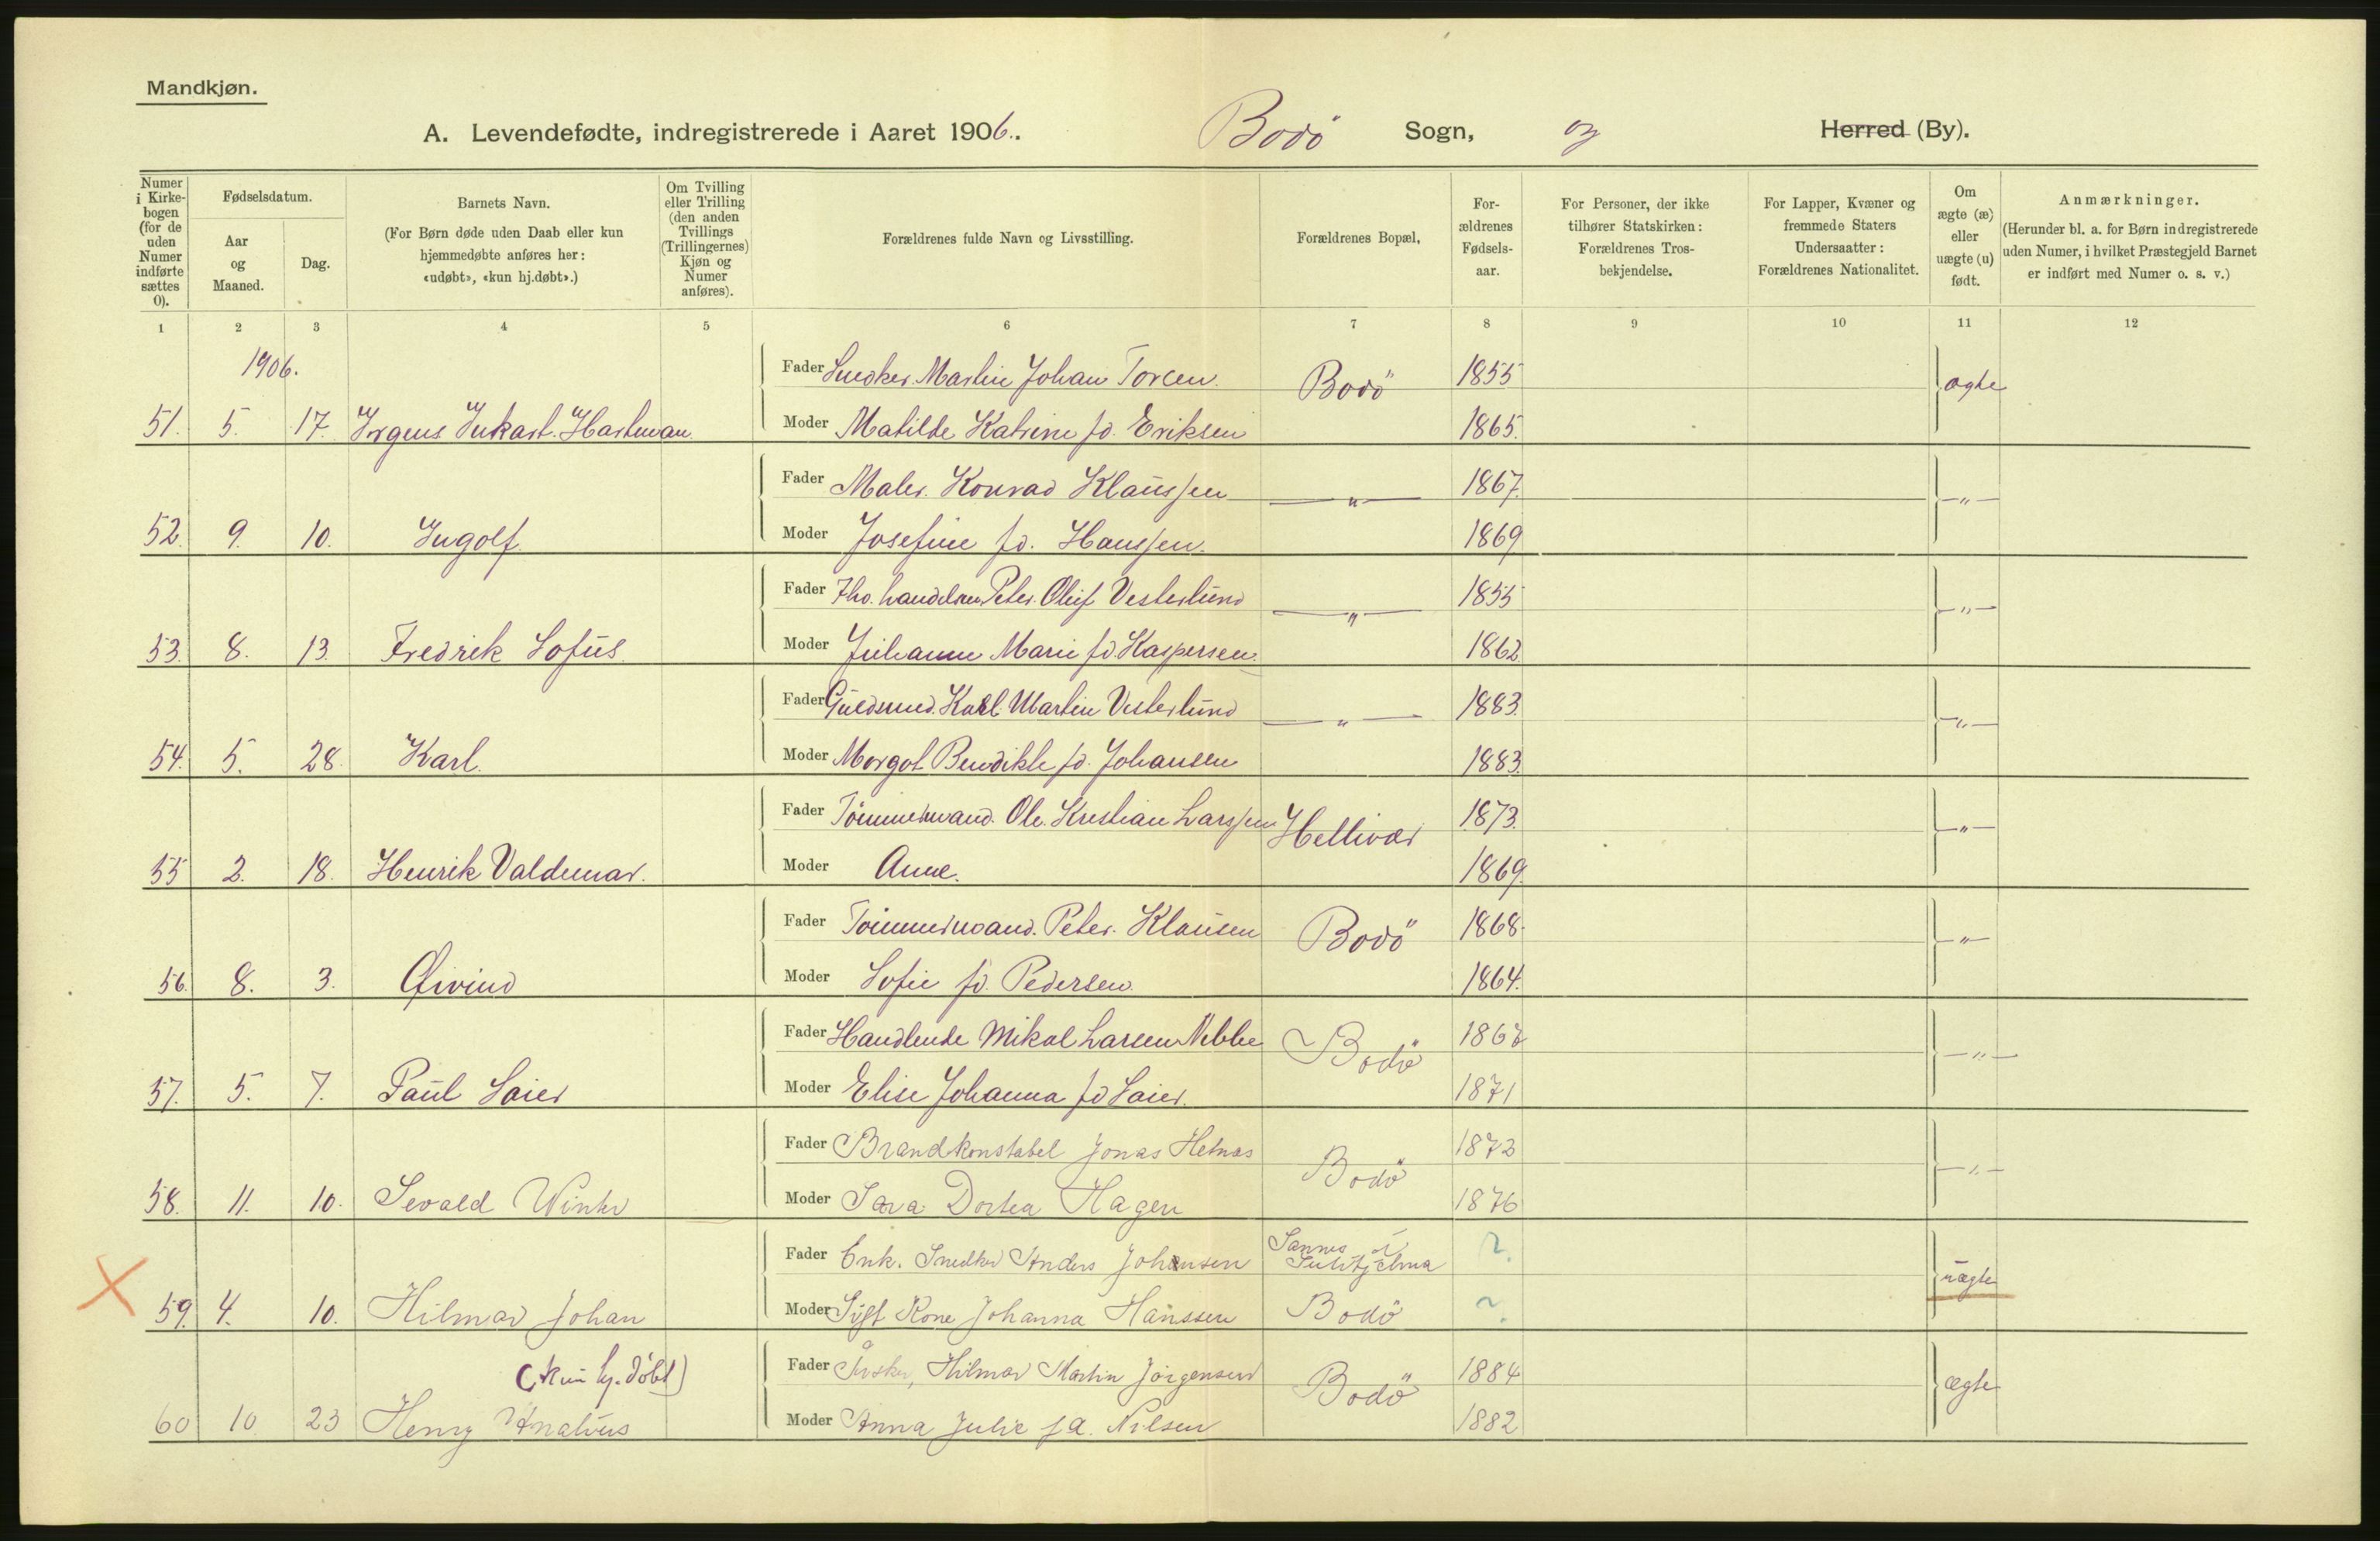 Mandkjøn.
A. Levendefødte, indregistrerede i Aaret 1906. Bodö Sogn, og Herred (By).
Numer i Kirkebogen (for de uden Numer indførte sættes 0).
Fødselsdatum.
Aar og Maaned.
Dag.
Barnets Navn.
(For Børn døde uden Daab eller kun hjemmedøbte anføres her: «udøbt», «kun hj.døbt».)
Om Tvilling eller Trilling (den anden Tvillings (Trillingernes) Kjøn og Numer anføres).
Forældrenes fulde Navn og Livsstilling.
Forældrenes Bopæl,
Forældrenes Fødselsaar.
For Personer, der ikke tilhører Statskirken: Forældrenes Trosbekjendelse.
For Lapper, Kvæner og fremmede Staters Undersaatter: Forældrenes Nationalitet.
Om ægte (æ) eller uægte (u) født.
Anmærkninger.
(Herunder bl. a. for Børn indregistrerede uden Numer, i hvilket Præstegjeld Barnet er indført med Numer o. s. v.)
1 2 3 4 5 6 7 8 9 10 11 12
1906. Fader Snedker. Martin Johan Torsen. Bodö 1855 ægte
51. 5. 17. Hartman Moder Matilde Katrine fd. Eriksen 1865.
Fader Maler. Konrad Klaussen — " — 1867. — " —
52. 9. 10. Ingolf. Moder Josefine fd. Hanssen. 1869
Fader Peter. Oluf Vesterlund — " — 1855 — " —
53. 8. 13. Fredrik Sofus. Moder Julianne Marie fd. Kaspersen. 1862
Fader Guldsmed. Karl Martin Vesterlund — " — 1883. — " —
54. 5. 28. Karl. Moder Morgot Bendikte fd. Johansen 1883.
Fader Tömmermand. Ole. Kristian Larssen Hellivær 1873. — " —
55 2. 18. Henrik Valdemar. Moder Anne. 1869.
Fader Tömmermand. Peter. Klausen Bodö 1868. — " —
56. 8. 3. Øivind Moder Sofie fd. Pedersen. 1864.
Fader Handlende Mikal Larsen Bodö 1867 — " —
57. 5. 7. Paul Saier Moder Elise Johanna fd Saier. 1871
Fader Brandkonstabel Jonas Helnæs Bodö 1872 — " —
58. 11. 10. Sevald Winter Moder Sara Dortea Hagen 1876
Fader Enk. Snedker Anders Johansen Sannes i Sulitjelma ?. uægte
59. 4. 10. Hilmar Johan Moder Kone Johanna Hanssen Bodö ?.
(kun hj. döbt) Fader Hilmar Martin Jörgensen Bodö 1884 ægte
60 10 23 Henry Moder Anna Julie fd. Nilsen 1882